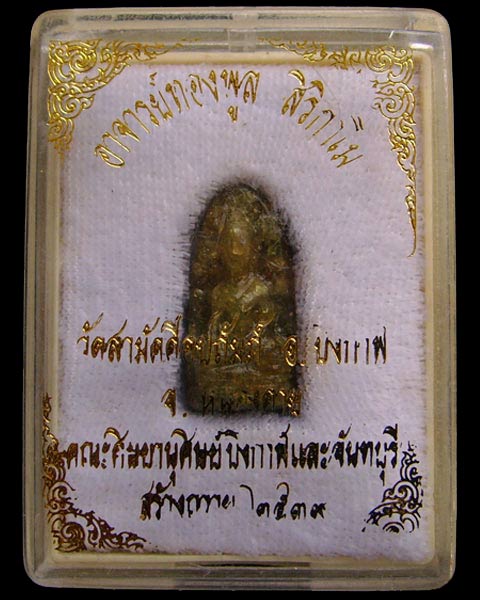 อาจารย์ทองพูล สิริกาโม
วัดสามัคคีอุปถัมภ์ อ.บึงกาฬ
จ.หนองคาย
คณะศิษยานุศิษย์บึงกาฬและจันทบุรี
สร้างถวาย ๒๕๓๙